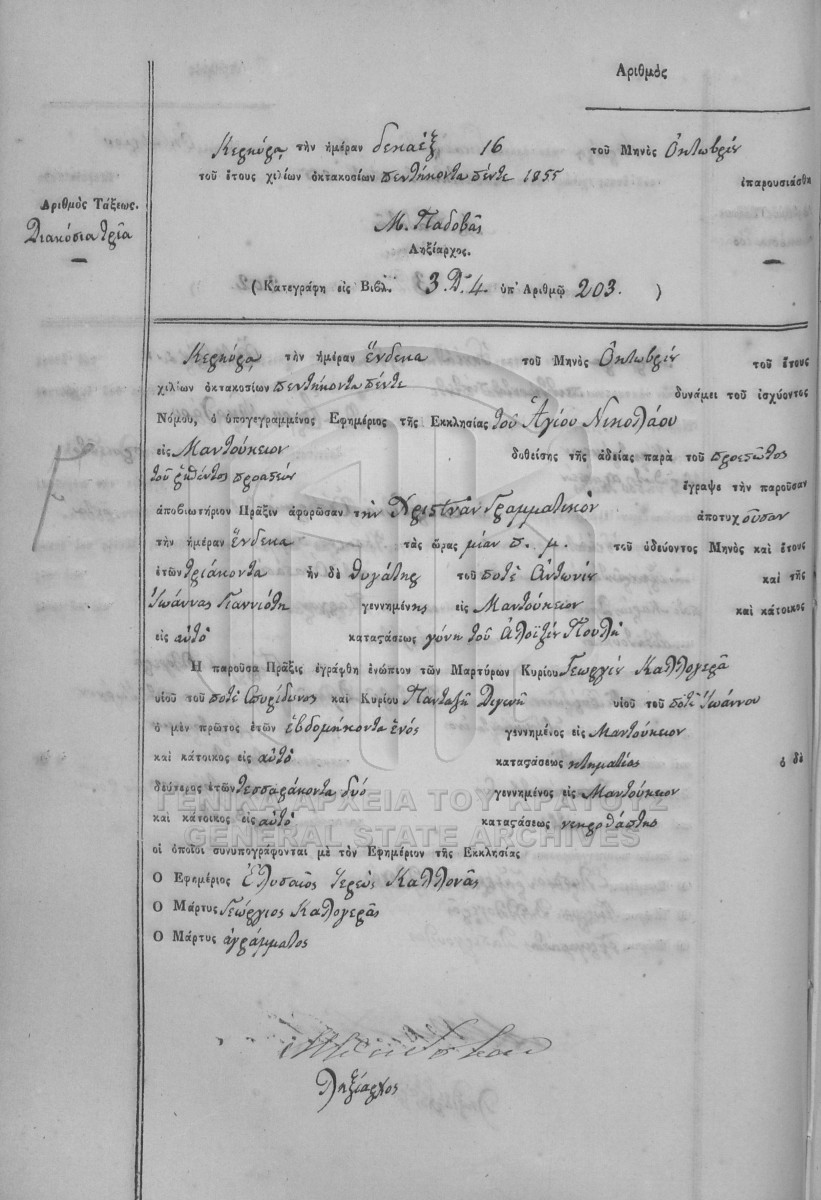 Αριθμὸς
Κερκύρᾳ τὴν ἡμέραν δεκαέξ 16 τοῦ Μηνὸς Ὀκτωβρίου
τοῦ ἔτους χιλίων ὀκτακοσίων πεντήκοντα πέντε 1855 ἐπαρουσιάσθη
Αριθμὸς Τάξεως.
Διακόσια τρία
Μ. Παδοβᾶς
Ληξίαρχος.
( Κατεγράφη εἰς Βιβλ. 3 4. ὑπ' Αριθμῷ 203. )
Κερκύρᾳ τὴν ἡμέραν ἕνδεκα τοῦ Μηνὸς Ὀκτωβρίου τοῦ ἔτους
χιλίων ὀκτακοσίων πεντήκοντα πέντε δυνάμει τοῦ ἰσχύοντος
Νόμου, ὁ ὑπογεγραμμένος Εφημέριος τῆς Εκκλησίας τοῦ Ἁγίου Νικολάου
εἰς Μαντούκειον δοθείσης τῆς ἀδείας παρὰ τοῦ προεστῶτος
τοῦ ῥηθέντος προαστείου ἔγραψε τὴν παροῦσαν
ἀποβιωτήριον Πρᾶξιν ἀφορῶσαν τὴν Χριστίναν Γραμματικοῦ ἀποτυχοῦσαν
τὴν ἡμέραν ἕνδεκα τὰς ὥρας μίαν π. μ. τοῦ ὁδεύοντος Μηνὸς καὶ ἔτους
ἐτῶν τριάκοντα ἦν δὲ θυγάτηρ τοῦ ποτὲ Ἀντωνίου καὶ τῆς
Ἰωάννας Γιαννιώτη γεννημένης εἰς Μαντούκειον καὶ κάτοικος
εἰς αὐτὸ καταστάσεως γύνη τοῦ Ἀλοϊζίου Πουλῆ
Η παροῦσα Πρᾶξις ἐγράφθη ἐνώπιον τῶν Μαρτύρων Κυρίου Γεωργίου Καλλογερᾶ
υἱοῦ τοῦ ποτὲ Σπυρίδωνος καὶ Κυρίου Πανταζῆ Διγενῆ υἱοῦ τοῦ ποτὲ Ἰωάννου
ὁ μὲν πρῶτος ἐτῶν ἑβδομήκοντα ἑνός γεννημένος εἰς Μαντούκειον
καὶ κάτοικος εἰς αὐτὸ καταστάσεως κτηματίας ὁ δὲ
δεύτερος ἐτῶν τεσσαράκοντα δύο γεννημένος εἰς Μαντούκειον
καὶ κάτοικος εἰς αὐτὸ καταστάσεως νεκροθάπτης
οἱ ὁποῖοι συνυπογράφονται μὲ τὸν Εφημέριον τῆς Εκκλησίας
Ο Εφημέριος Ἐλυσαῖος Ἱερεὺς Καλλονᾶς
Ο Μάρτυς Γεώργιος Καλογερᾶς
Ο Μάρτυς ἀγράμματος
Ληξίαρχος
ΓΕΝΙΚΑ ΑΡΧΕΙΑ ΤΟΥ ΚΡΑΤΟΥΣ
GENERAL STATE ARCHIVES